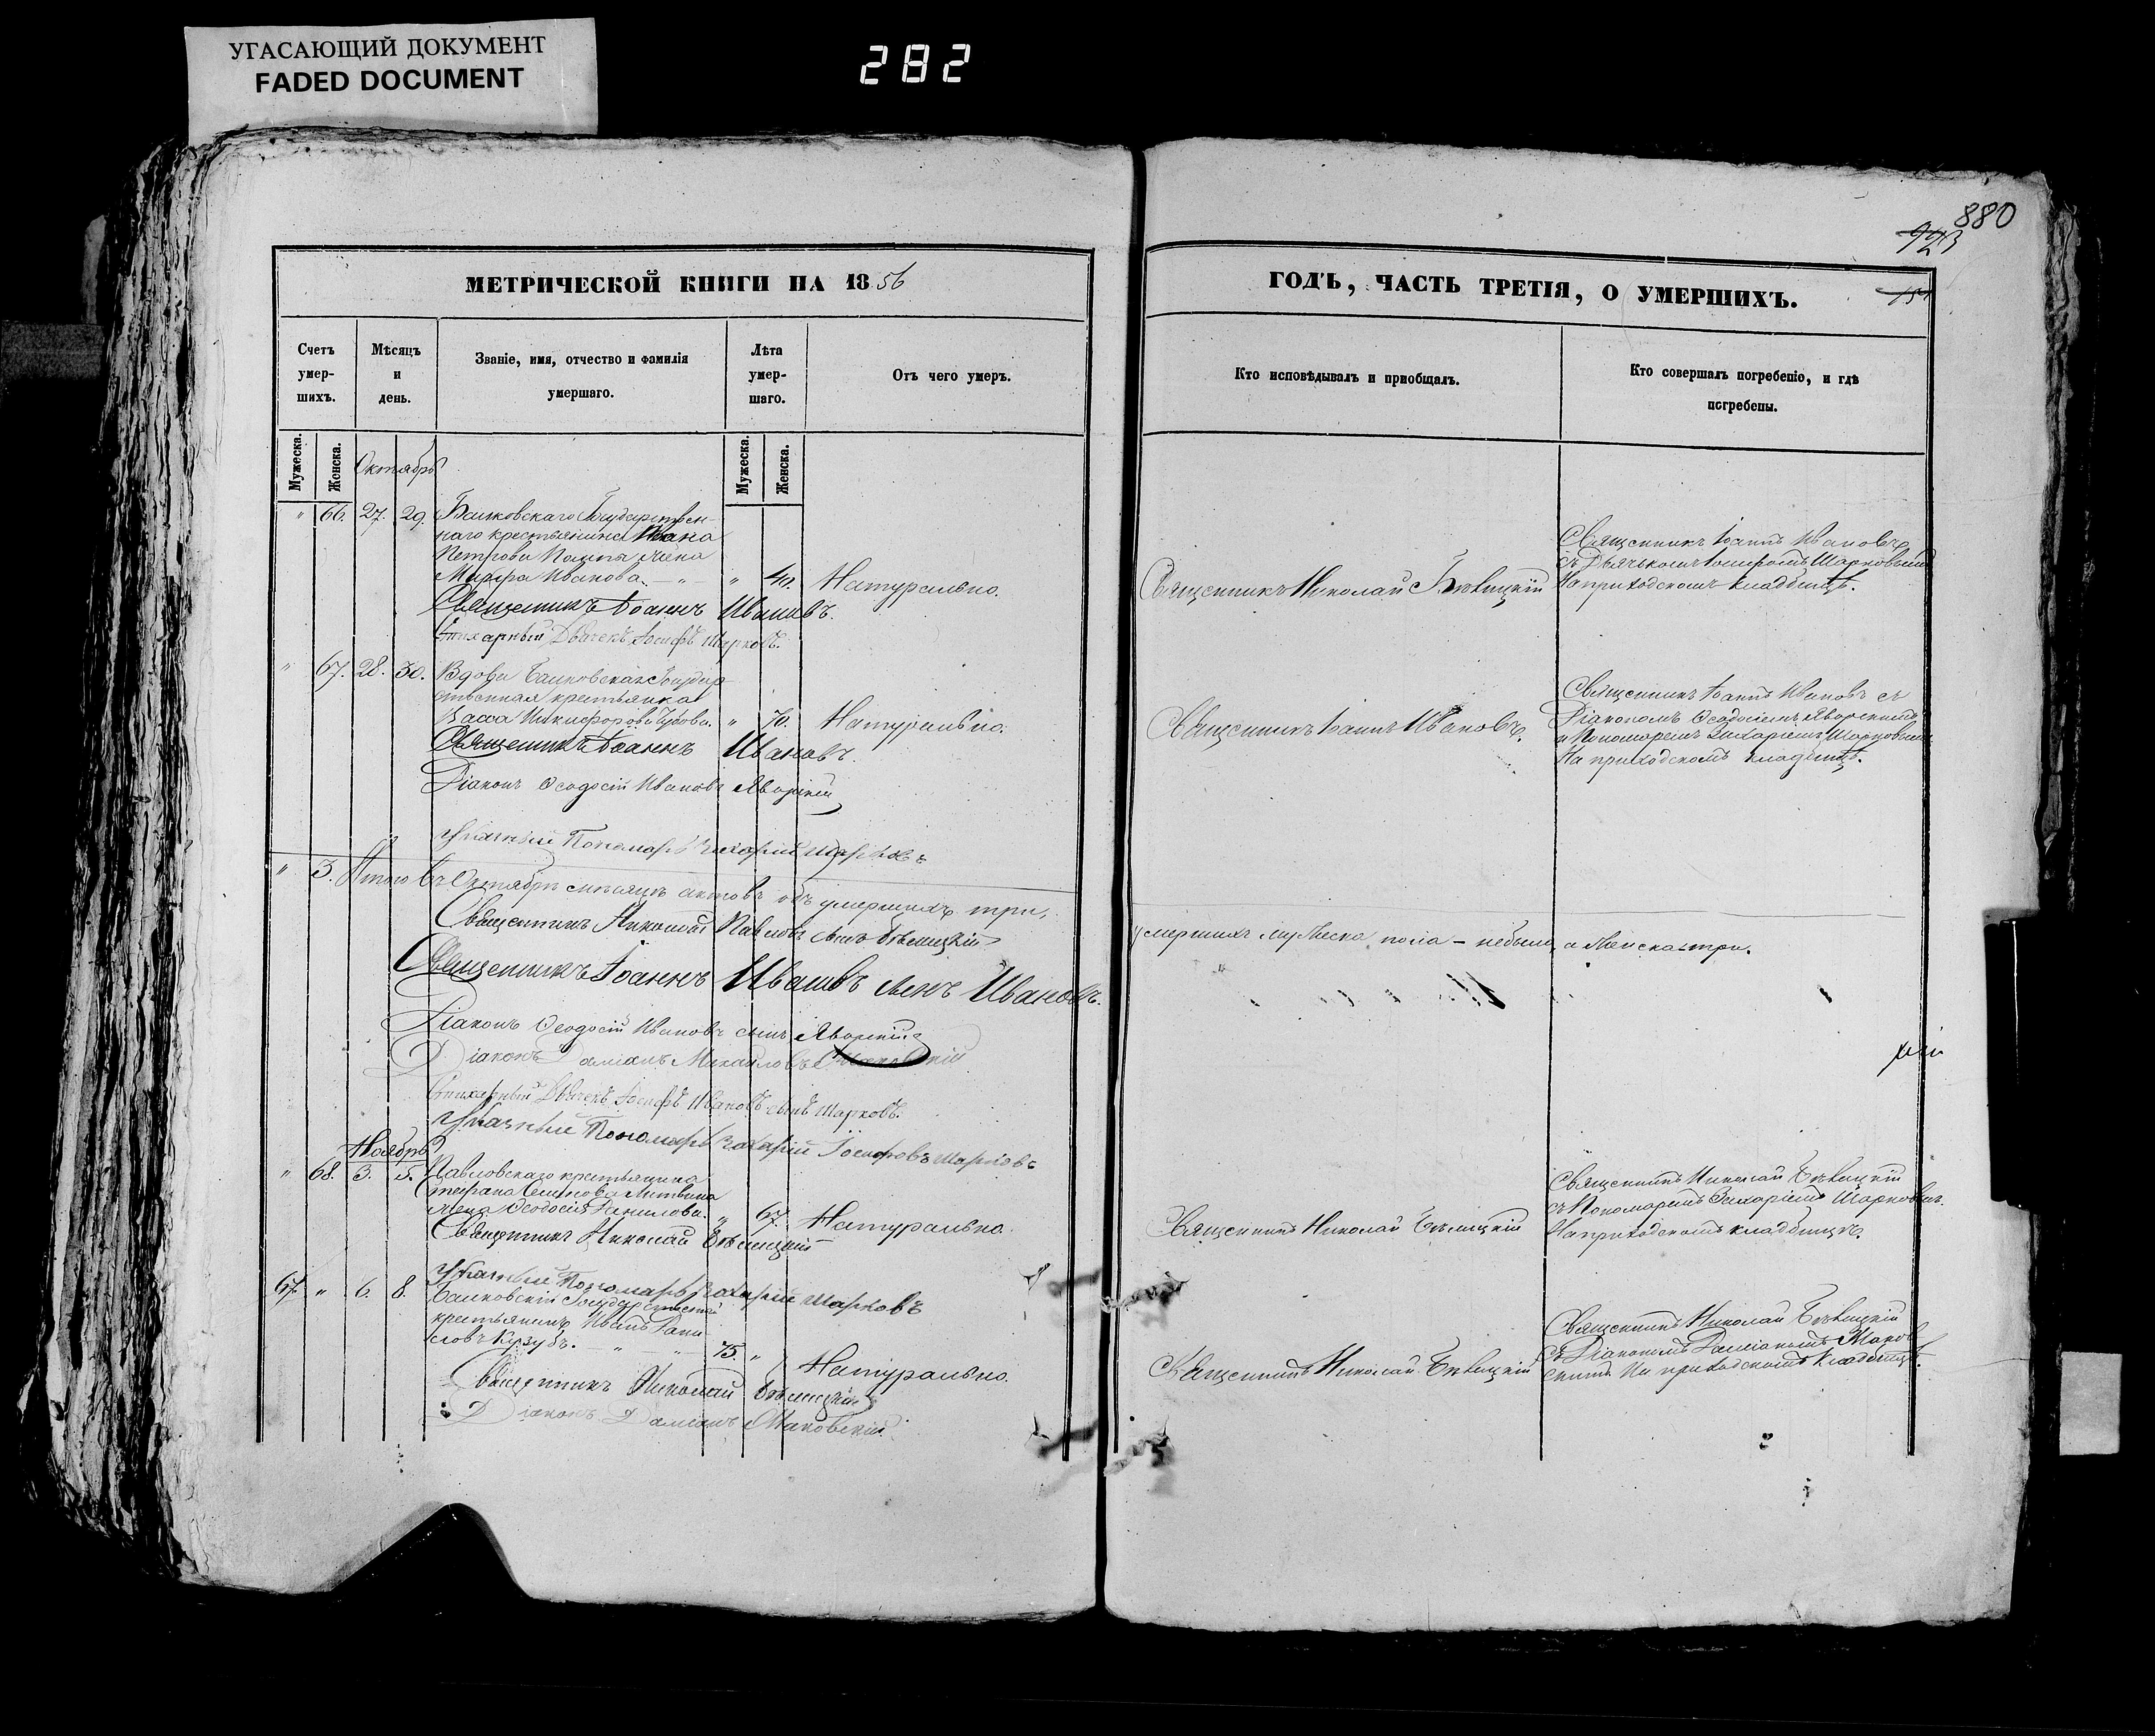 УГАСАЮЩИЙ ДОКУМЕНТ
FADED DOCUMENT
282
880
МЕТРИЧЕСКОЙ КНИГИ НА 1856
Счетъ умер- шихъ.
Мѣсяцъ и день.
Званіе, имя, отчество и фамилія умершаго.
Лѣта умер- шаго.
Отъ чего умеръ.
Мужеска.
Женска.
Мужеска.
Женска.
Октябрь
" 66. 27. 29.
наго крестьянина Ивана
Петрова жена
Иванова. " 40. Натурально.
Священникъ Іоаннъ Ивановъ.
Стихарный Дьячекъ Іосифъ Марковъ.
" 67. 28. 30. Вдова
ственная крестьянка
Васса Никифорова " 70. Натурально.
Священникъ Іоаннъ Ивановъ.
Діаконъ Ѳеодосій Ивановъ Яворскій
Указный Пономарь Захарій Марковъ
" 3. Итого въ Октябрѣ мѣсяцѣ актовъ объ умершихъ три,
Священникъ Николай Павловъ сынъ Бѣлицкій
Священникъ Іоаннъ Ивановъ сынъ Ивановъ.
Діаконъ Ѳеодосій Ивановъ сынъ Яворскій
Діаконъ Даміанъ Михайловъ Маковскій
Стихарный Дьячекъ Іосифъ Ивановъ сынъ Марковъ.
Указный Пономарь Захарій Іосифовъ Марковъ
Ноябрь
" 68. 3. 5. Павловскаго крестьянина
Стефана Семенова Литвина
жена Ѳеодосія Данилова. " 67. Натурально.
Священникъ Николай Бѣлицкій
Указный Пономарь Захарій Марковъ
67. " 6. 8. Государственный
крестьянинъ Иванъ Дани
ловъ Кузубъ. 75. " Натурально.
Священникъ Николай Бѣлицкій
Діаконъ Даміанъ Маковскій.
ГОДЪ, ЧАСТЬ ТРЕТІЯ, О УМЕРШИХЪ.
Кто исповѣдывалъ и пріобщалъ.
Кто совершалъ погребеніе, и гдѣ погребены.
Священникъ Николай Бѣлицкій
Священникъ Іоаннъ Ивановъ
съ Дьячкомъ Іосифомъ Марковымъ
На приходскомъ кладбищѣ.
Священникъ Іоаннъ Ивановъ.
Священникъ Іоаннъ Ивановъ съ
Діакономъ Ѳеодосіемъ Яворскимъ
и Пономаремъ Захаріемъ Марковымъ
На приходскомъ кладбищѣ.
умершихъ мужеска пола – небыло, а женска три.
Священникъ Николай Бѣлицкій
Священникъ Николай Бѣлицкій
съ Пономаремъ Захаріемъ Марковымъ
На приходскомъ кладбищѣ.
Священникъ Николай Бѣлицкій
Священникъ Николай Бѣлицкій
съ Діакономъ Даміаномъ Маков
скимъ На приходскомъ кладбищѣ.